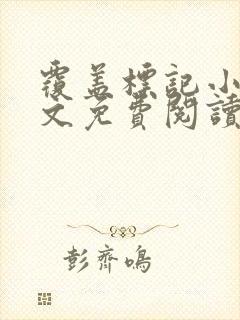 覆盖標記小
文免費閱讀
彭齊鳴